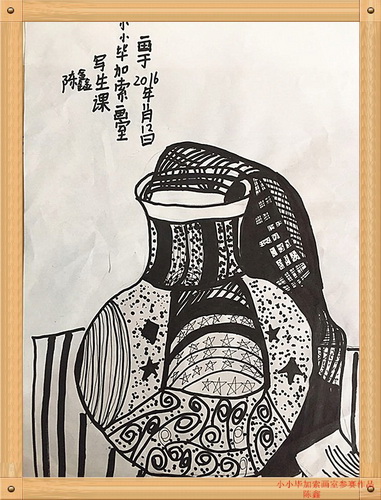 画于2016年11月12日
小小毕加索画室
写生课
陈鑫
小小毕加索画室参赛作品
陈鑫